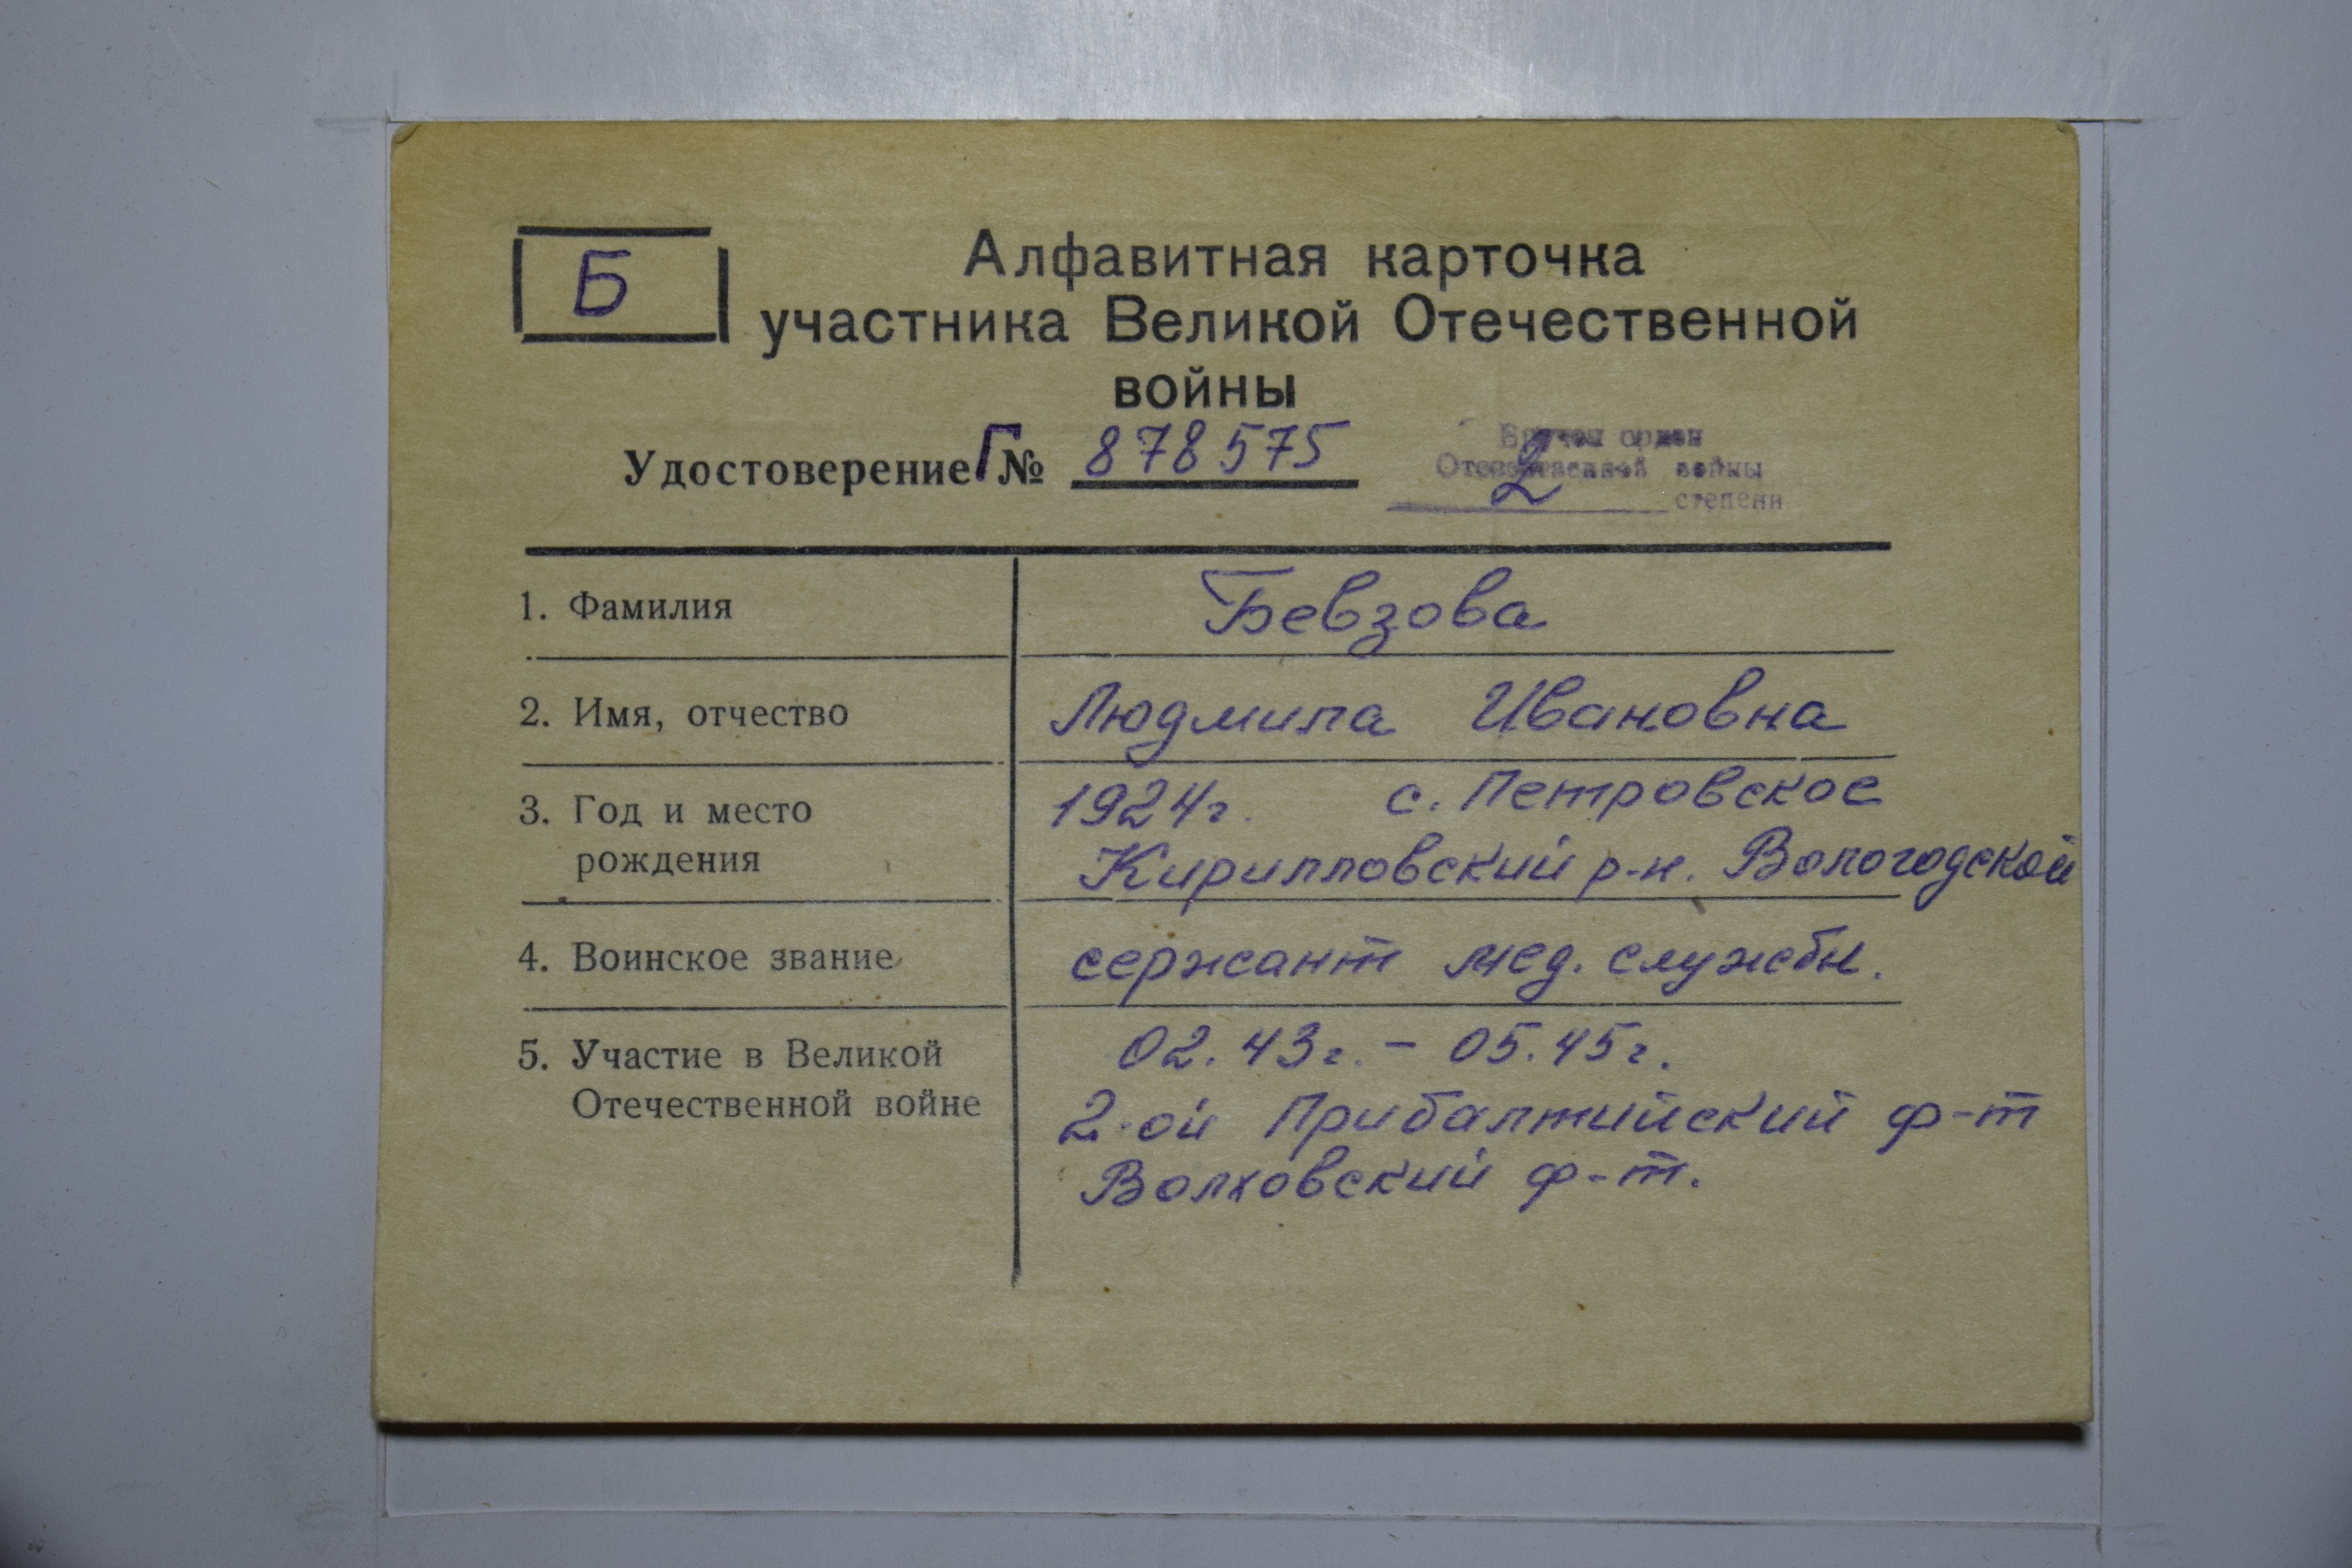 Б
Алфавитная карточка
участника Великой Отечественной
войны
Удостоверение Г № 878575
Вручен орден
Отечественной войны
2 степени
1. Фамилия
Бевзова
2. Имя, отчество
Людмила Ивановна
3. Год и место
рождения
1924г. с. Петровское
Кирилловский р-н. Вологодской
4. Воинское звание
сержант мед. службы.
5. Участие в Великой
Отечественной войне
02.43г. - 05.45г.
2-ой Прибалтийский ф-т
Волховский ф-т.